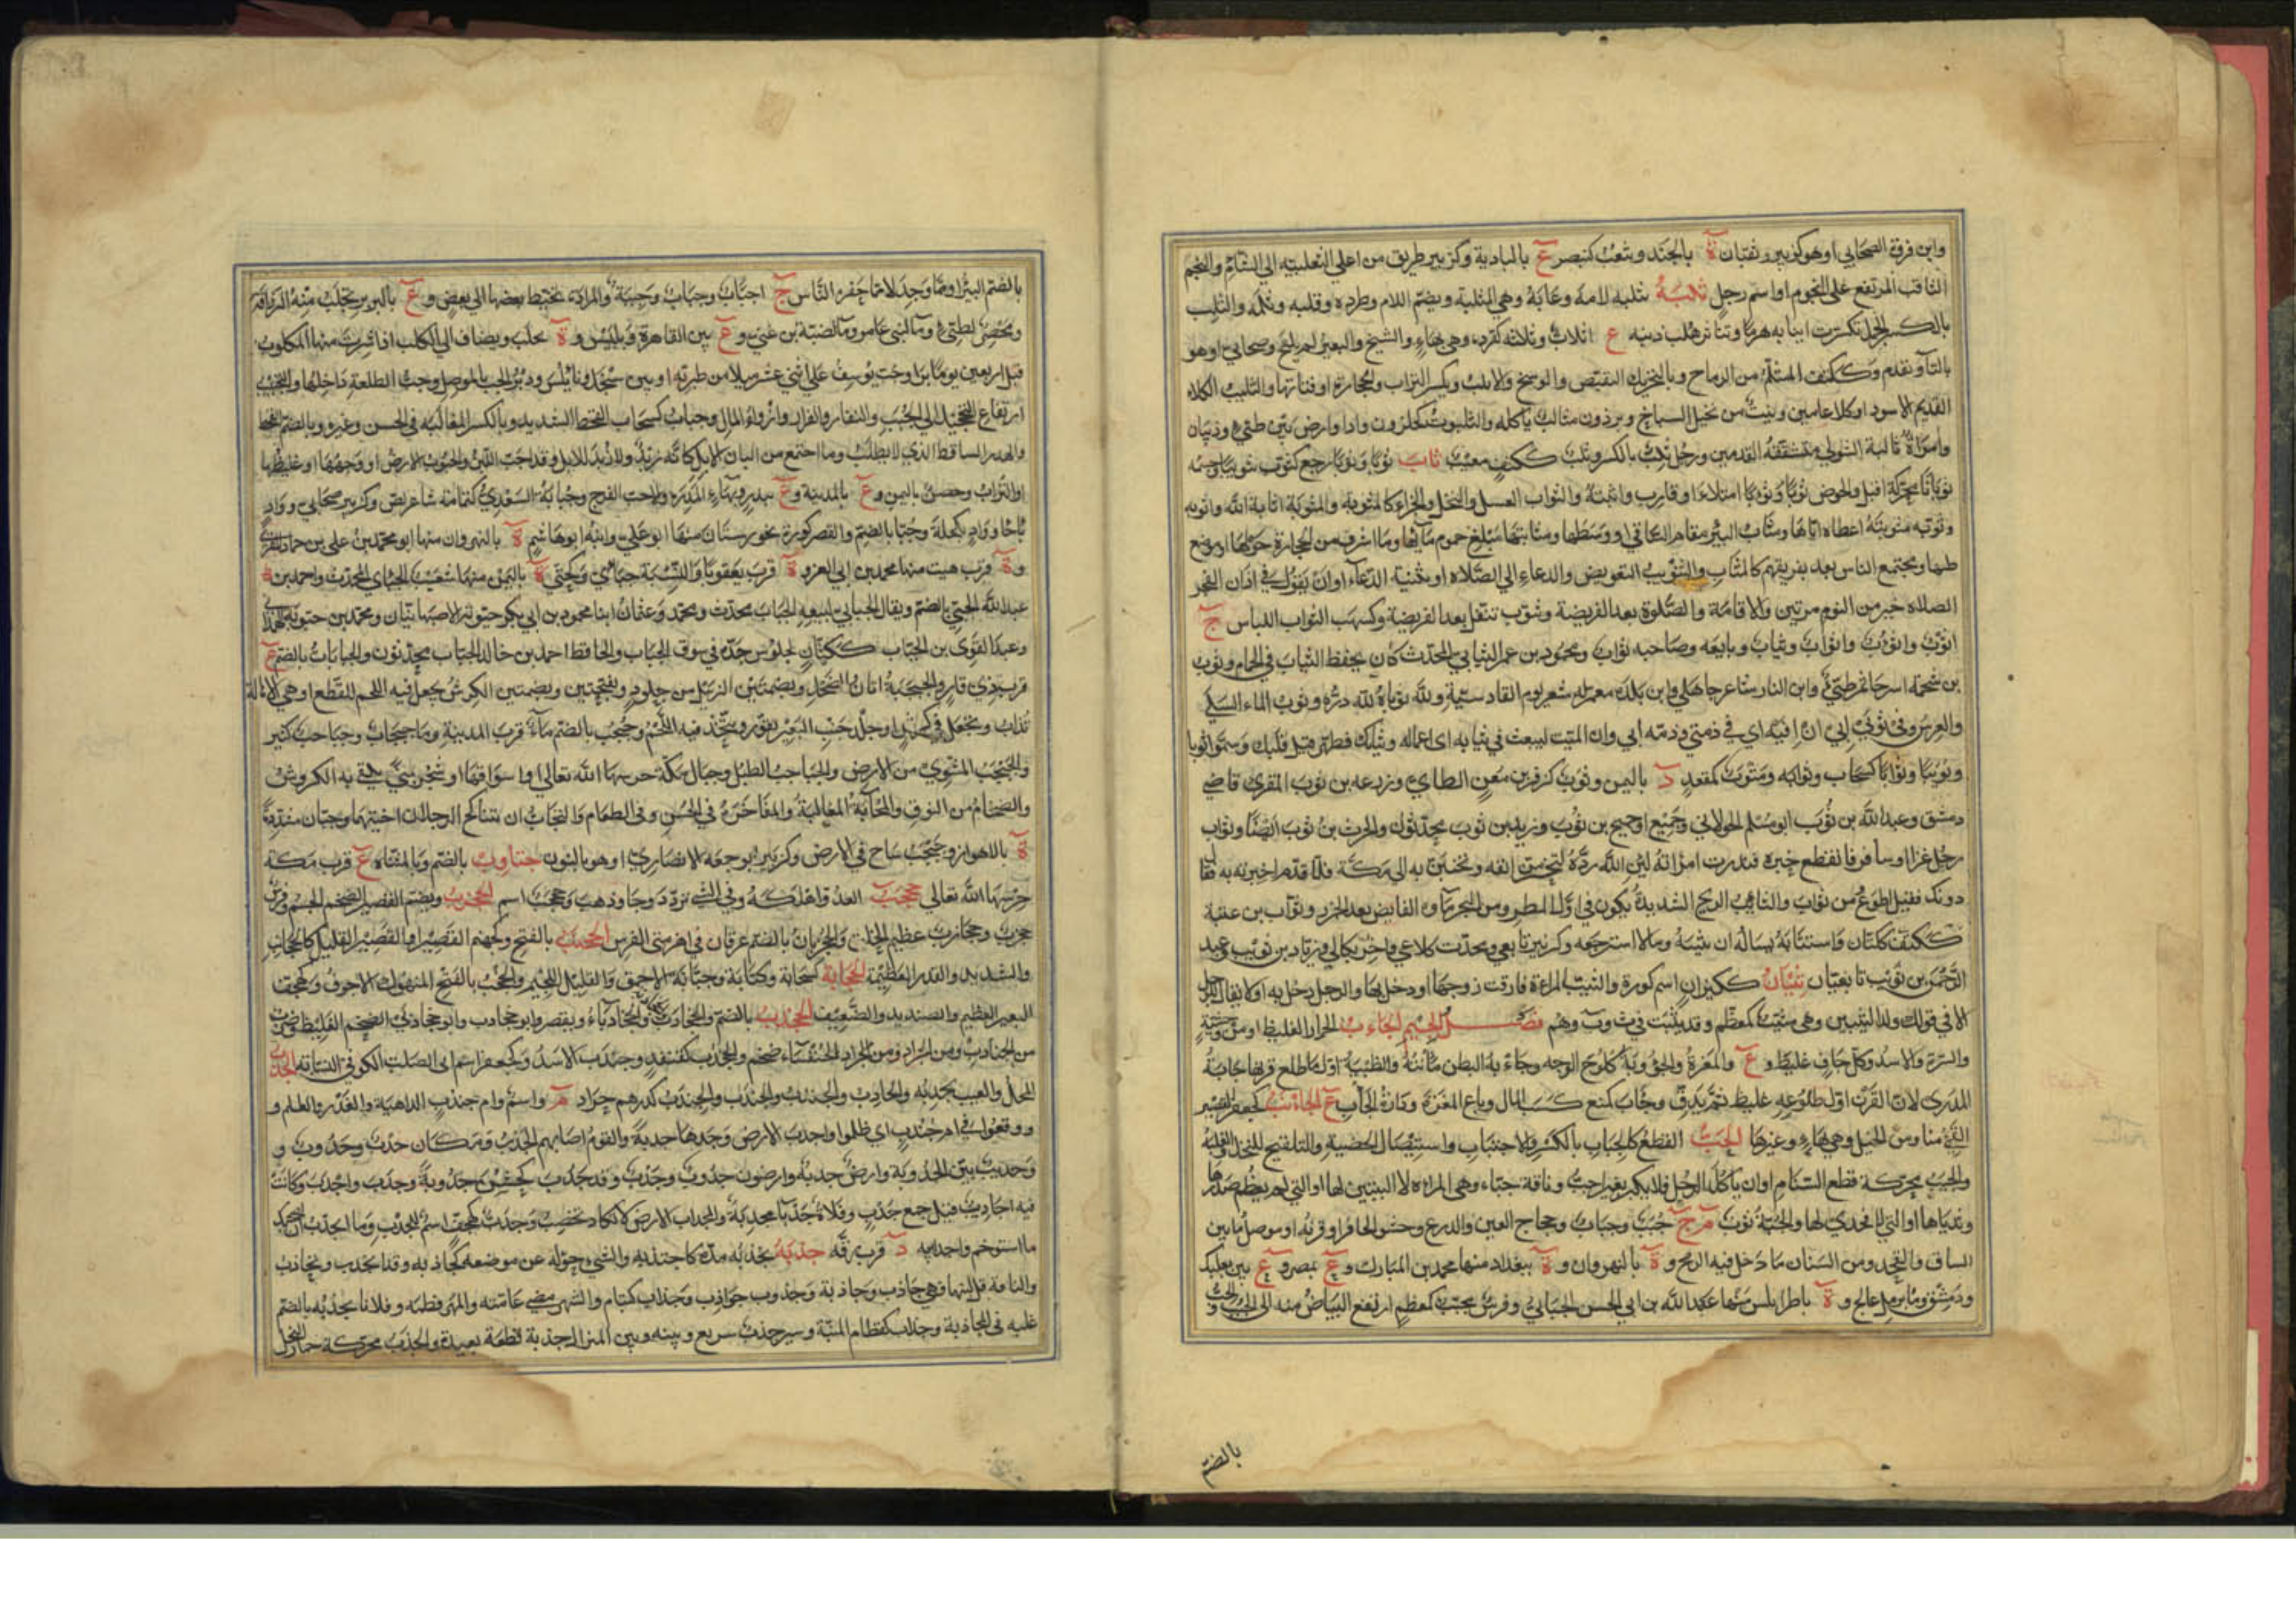 وابن فروة الصحابي اوهو كزبير وثقبان ة بالجند ويثقب كينصر ع بالبادية وكزبير طريق من اعلى الثعلبيه الى الشام والنجم
الثاقب المرتفع على النجوم او اسم زحل ثلبه يثلبه لامه وعابه وهي المثلبة ويضم اللام وطرده وقلبه وثلمه والثلب
بالكسر الجمل تكسرت انيابه هرما وتناثر هلب ذنبه ج اثلاب وثلبه كقرده وهي بهاء والشيخ والبعير لم يلقح وصحابي اوهو
بالتاء وتقدم وككتف المتثلم من الرماح وبالتحريك التقبض والوسخ والاثلب ويكسر التراب والحجارة او فتاتها والثليب الكلاء
القديم الاسود او كلاء عامين ونبت من نجيل السباخ وبرذون مثالب ياكله والثلبوت كحلزون واد او ارض بين طيئ وذبيان
وامراة ثالبة الشوى متشققة القدمين ورجل ثلب بالكسر وثلب ككتف معيب ثاب ثوبا وثؤوبا رجع كثوب تثويبا وجسمه
ثوبانا محركة اقبل والحوض ثوبا وثؤوبا امتلاء او قارب واثبته والثواب العسل والنحل والجزاء كالمثوبة والمثوبة اثابه الله واثوبه
وثوبه مثوبته اعطاه اياها ومثاب البئر مقام الساقي او وسطها ومثابتها مبلغ جموم مائها وما اشرف من الحجارة حولها او موضع
طيها ومجتمع الناس بعد تفرقهم كالمثاب والتثويب التعويض والدعاء الى الصلاة او تثنية الدعاء او ان يقول في اذان الفجر
الصلاة خير من النوم مرتين والاقامة والصلوة بعد الفريضة وتثوب تنفل بعد الفريضة وكسب الثواب والثوب اللباس ج
اثوب واثؤب واثواب وثياب وبايعه وصاحبه ثواب ومحمود بن عمر الثيابي المحدث كان يحفظ الثياب في الحمام وثوب
بن شحمة اسر حاتم طيئ وابن النار شاعر جاهلي وابن تلدة معمر له شعر يوم القادسية ولله ثوباه لله دره وثوب الماء السلى
والغرس وفي ثوبي ابي ان افيه اي في ذمتي وذمة ابي وان الميت ليبعث في ثيابه اي اعماله وثيابك فطهر قيل قلبك وسموا ثوبا
وثويبا وثوابا كسحاب وثوابه ومثوب كمقعد د باليمن وثوب كزفر بن معن الطائي وزرعه بن ثوب المقرئ قاضي
دمشق وعبد الله بن ثوب ابو مسلم الخولاني وجميع او جميح بن ثوب وزيد بن ثوب محدثون والحرث بن ثوب ايضا وثواب
رجل غزا او سافر فانقطع خبره فنذرت امراته لئن الله رده لتخرمن انفه وتجنبن به الى مكة فلما قدم اخبرته به فقال
دونك فقيل اطوع من ثواب والثائب الريح الشديدة يكون في اول المطر ومن البحر ماؤه الفايض بعد الجزر وثواب بن عتبة
ككتان واستثابه يساله ان يثيبه ومالا استرجعه وكزبير تابعي ومحدث كلاعي واخر بكالي وزياد بن ثويب وعبد
الرحمن بن ثويب تابعيان ثيبان ككيزان اسم كورة والثيب المراة فارقت زوجها او دخل بها والرجل دخل به او لا يقال للرجل
الا في قولك ولد الثيبين وهي مثيب كمعظم وقد تثيبت في ث و ب وهم فصل الجيم الجاءب الحمار الغليظ او من وحشيه
والسرة والاسد وكل جاف غليظ وع والمغرة والجؤوبة كلوح الوجه وجاءبة البطن مانته والظبية اول ما طلع قرنها جابة
المدرى لان القرن اول طلوعه غليظ ثم يدق وجاب كمنع كسب المال وباع المغرة ودارة الجاب ع الجانب كجعفر القصير
القمي منا ومن الخيل وهي بهاء وغيرها الجب القطع كالجباب بالكسر والاجتباب واستيصال الخصية والتلقيح للنخل والغلبة
والجبب محركة قطع السنام او ان ياكله الرحل فلا يكبر بعير اجب وناقة جباء وهي المراة لا اليتين لها او التي لم يعظم صدرها
وثدياها او التي لا فخذي لها والجبة ثوب م ج جبب وجباب وحجاج العين والدرع وحشو الحافر او قرنه او موصل ما بين
الساق والفخذ ومن السنان ما دخل فيه الرمح و ة بالنهروان و ة ببغداد منها محمد بن المبارك و ع بمصر و ع بين بعلبك
ودمشق وماء برمل عالج و ة باطرابلس منها عبد الله بن ابي الحسن الجبائي وفرس مجبب كمعظم ارتفع البياض منه الى الجبب والجب
بالضم
بالضم البئر او مما وجد لا مما حفره الناس ج اجباب وجباب وجببة والمزادة يخيط بعضها الى بعض و ع بالبربر يجلب منه الزرافة
ومحضر لطيئ وماء لبني عامر وماء لضبة بن غني و ع بين القاهرة وبلبيس و ة بحلب ويضاف الى الكلب اذا شرب منها المكلوب
قبل اربعين يوما برا وجب يوسف على اثني عشر ميلا من طبريه او بين سنجل ونابلس ودير الجب بالموصل وجب الطلعة داخلها والتجبيب
ارتفاع التحجيل الى الجبب والنفار والفرار وارواء المال وجباب كسحاب القحط الشديد وبالكسر المغالبة في الحسن وغيره وبالضم القحط
والهدر الساقط الذي لا يطلب وما اجتمع من البان الابل كانه زبد ولا زبد للابل وقد اجب اللبن والجبوب الارض او وجهها او غليظها
او التراب وحصن باليمن و ع بالمدينة و ع ببدر وبهاء المدرة والاجب الفرج وجبابة السعدي كثمامة شاعر لص وكزبير صحابي وواد
باجا وواد بكحلة وجبا بالضم والقصر كورة بخورستان منها ابو علي وابنه ابو هاشم ة بالنهروان منها ابو محمد بن علي بن حماد المقرئ
و ة قرب هيت منها محمد بن ابي العز و ة قرب يعقوبا والنسبة جبائي وكحتى ة باليمن منها شعيب الجبائي المحدث واحمد بن
عبد الله الجبي بالضم ويقال الجبابي لبيعه الجباب محدث ومحمد وعثمان ابنا محمود بن ابي بكر جبويه الاصبهانيان ومحمد بن جبويه الهمذاني
وعبد القوي بن الجباب ككتان لجلوس جده في سوق الجباب والحافظ احمد بن خالد الجباب محدثون والجبابات بالضم ع
قرب ذي قار والجبجبة اتان الضحل وبضمتين الزبيل من جلود وبفتحتين وبضمتين الكرش يجعل فيه اللحم المقطع او هي الاهالة
تذاب وتجعل في كرش او جلد جنب البعير يقور ويتخذ فيه اللحم وجبجب بالضم ماء قرب المدينة وما جبجاب وجباجب كثير
والجبجب المستوي من الارض والجباجب الطبل وجبال مكة حرسها الله تعالى او اسواقها او منحر بمنى يلقى به الكروش
والضخام من النوق والمجابة المغالبة والمفاخرة في الحسن وفي الطعام والتجاب ان يتناكح الرجلان اختيهما وجبان مشددة
ة بالاهواز وجبجب ساح في الارض وكزبير ابو جمعة الانصاري او هو بالنون جتاوب بالضم وبالمثناة ع قرب مكة
حرسها الله تعالى جحجب العدو اهلكه وفي الشي تردد وجا وذهب وجحجب اسم الجحدب وبضم القصير الضخم الجسم وفرس
جحرب وجحارب عظيم الخلق والجحربان بالضم عرقان في لهزمتي الفرس الجحنب بالفتح وكجهنم القصير او القصير القليل كالجحانب
والشديد والقدر العظيمة الجخابة كسحابة وكتابة وجبانة الاحمق والثقيل اللحيم والجخب بالفتح المنهوك الاجوف وكهجف
البعير العظيم والصنديد والضعيف الجخدب بالضم والجخادب والجخادباء ويقصر وابو جخادب وابو جخادبى الضخم الغليظ وضرب
من الجنادب ومن الجراد ومن الخنفساء ضخم والجخدب كقنفذ وجندب الاسد وكجعفر اسم ابي الصلت الكوفي النسابه الجدب
المحل والعيب يجدبه والجادب والجندب والجندب والجندب كدرهم جراد م واسم وام جندب الداهية والغدر والظلم و
ووقعوا في ام جندب اي ظلموا واجدب الارض وجدها جدبة والقوم اصابهم الجدب ومكان جدب وجدوب و
وجديب بين الجدوبة وارض جدبة وارضون جدوب وجدب وقد جدب كخشن جدوبة وجدب واجدب وكانت
فيه اجادب قيل جمع جدب وفلاة جدباء مجدبة والمجداب الارض لا تكاد تخصب وجدب كهجف اسم للجدب وما اتجدب ان يصحبك
ما استوخم واجدابيه د قرب برقه جذبه يجذبه مده كاجتذبه والشي حوله عن موضعه كجاذبه وقد انجذب وتجاذب
والناقة قل لبنها فهي جاذب وجاذبة وجذوب جواذب وجذاب كنيام والشهر مضى عامته والمهر فطمه وفلانا يجذبه بالضم
غلبه في المجاذبة وجذاب كقطام المنية وسير جذب سريع وبينه وبين المنزل جذبة قطعة بعيدة والجذب محركة جمار النخل